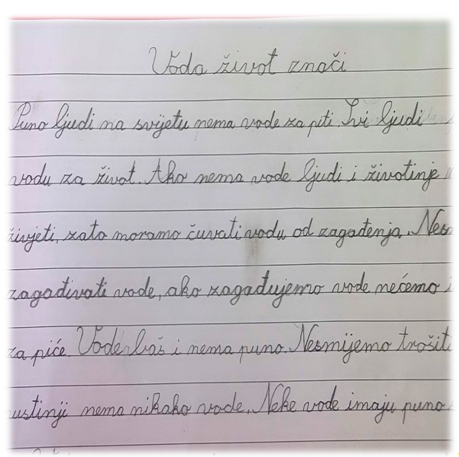 Voda život znači
Puno ljudi na svijetu nema vode za piti. Svi ljudi
vodu za život. Ako nema vode ljudi i životinje
živjeti, zato moramo čuvati vodu od zagađenja. Nesm
zagađivati vode, ako zagađujemo vode nećemo i
za piće. Vode baš i nema puno. Nesmijemo trošiti
ustinji nema nikako vode. Neke vode imaju puno